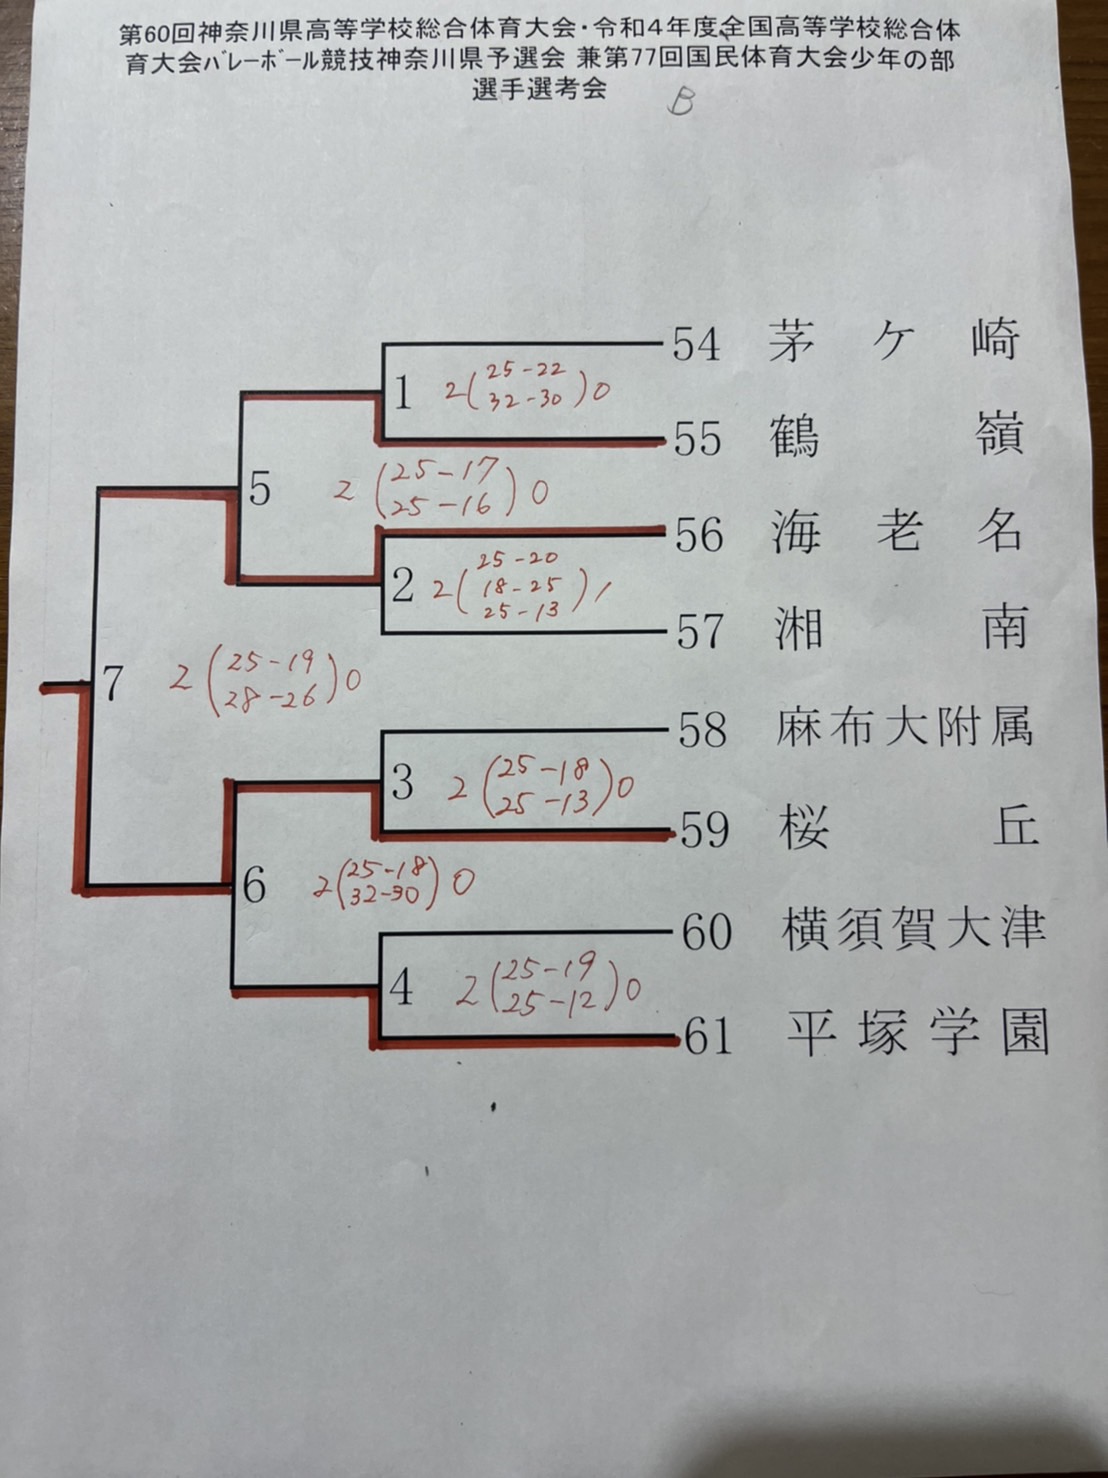 第60回神奈川県高等学校総合体育大会・令和4年度全国高等学校総合体
育大会ﾊﾞﾚｰﾎﾞｰﾙ競技神奈川県予選会 兼第77回国民体育大会少年の部
選手選考会
B
54 茅ケ崎
1 2(25-22 32-30)0
55 鶴嶺
5 2(25-17 25-16)0
56 海老名
2 2(25-20 18-25 25-13)1
57 湘南
7 2(25-19 28-26)0
58 麻布大附属
3 2(25-18 25-13)0
59 桜丘
6 2(25-18 32-30)0
60 横須賀大津
4 2(25-19 25-12)0
61 平塚学園